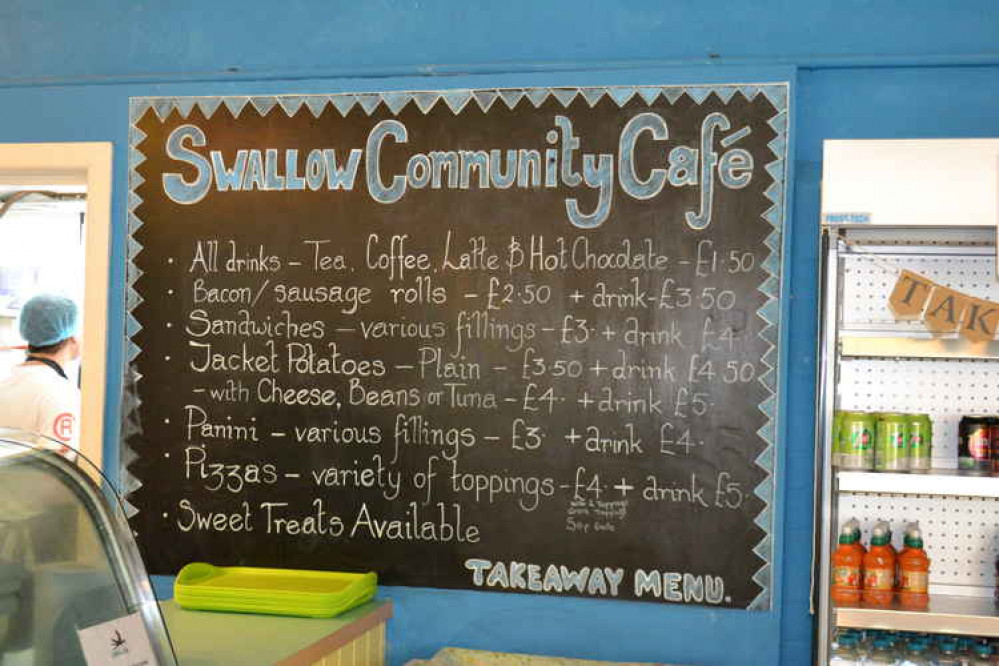 Swallow Community Café
· All drinks – Tea, Coffee, Latte & Hot Chocolate – £1·50
· Bacon/sausage rolls – £2·50 + drink – £3·50
· Sandwiches – various fillings – £3· + drink £4·
· Jacket Potatoes – Plain – £3·50 + drink £4·50
– with Cheese, Beans or Tuna – £4· + drink £5·
· Panini – various fillings – £3· + drink £4·
· Pizzas – variety of toppings – £4· + drink £5·
50p
· Sweet Treats Available
TAKEAWAY MENU.
TAK
7